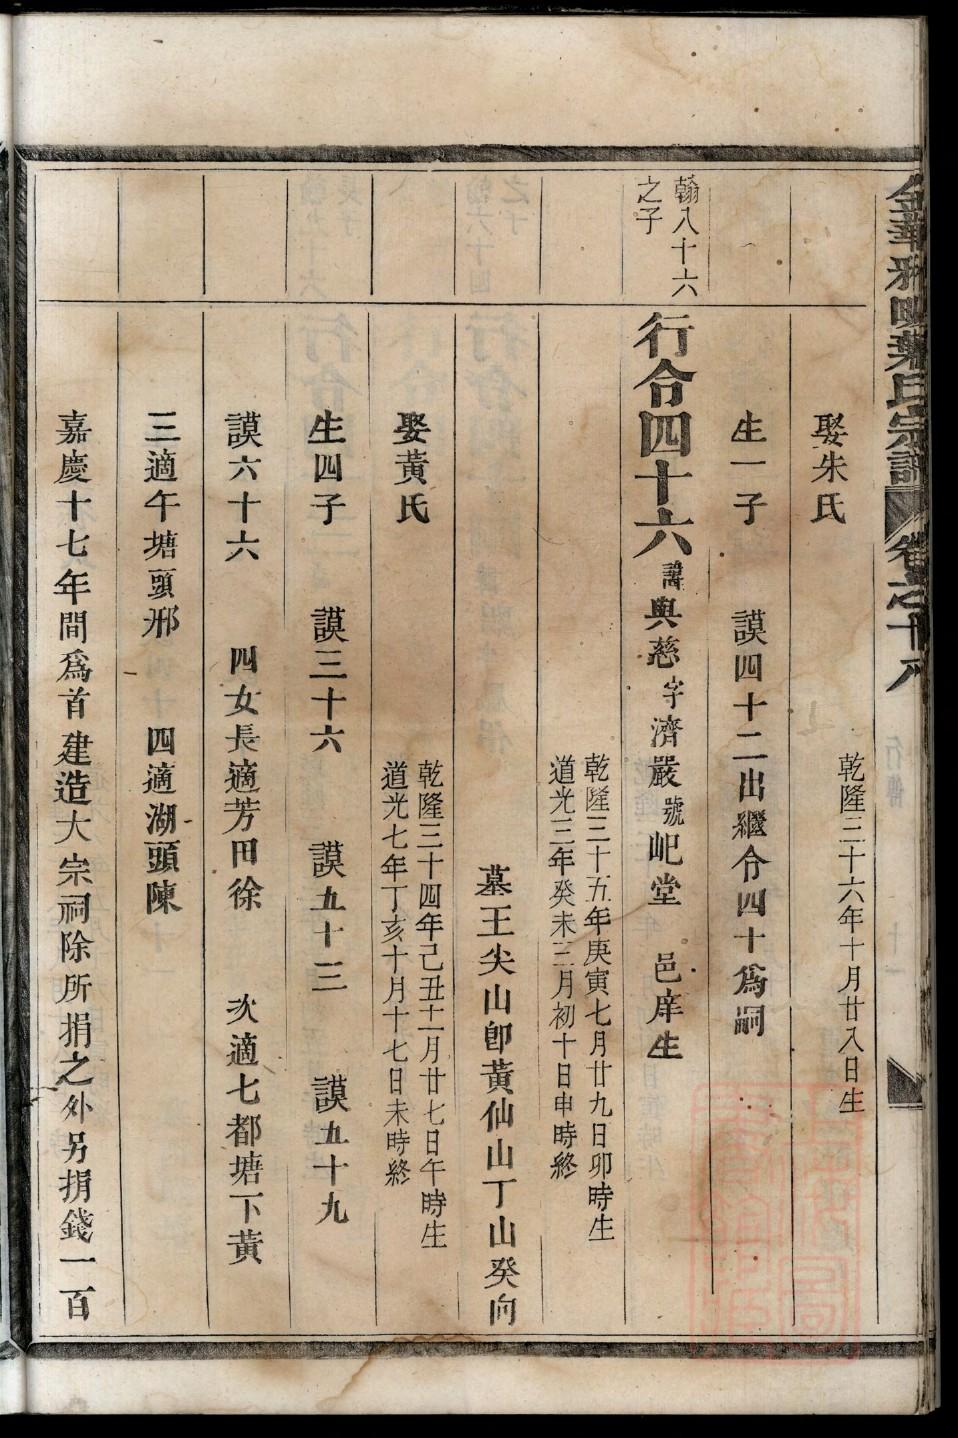 氏宗譜
卷之十八
行傳
十一
娶朱氏
乾隆三十六年十月廿八日生
生一子 謨四十二出繼令四十爲嗣
翰八十六
之子
行令四十六諱與慈字濟嚴號屺堂 邑庠生
乾隆三十五年庚寅七月廿九日卯時生
道光三年癸未二月初十日申時終
墓王尖山卽黃仙山丁山癸向
娶黃氏
乾隆三十四年己丑十二月廿七日午時生
道光七年丁亥十月十七日未時終
生四子 謨三十六 謨五十三 謨五十九
謨六十六 四女長適芳田徐 次適七都塘下黃
三適午塘頭邢 四適湖頭陳
嘉慶十七年間爲首建造大宗祠除所捐之外另捐錢一百